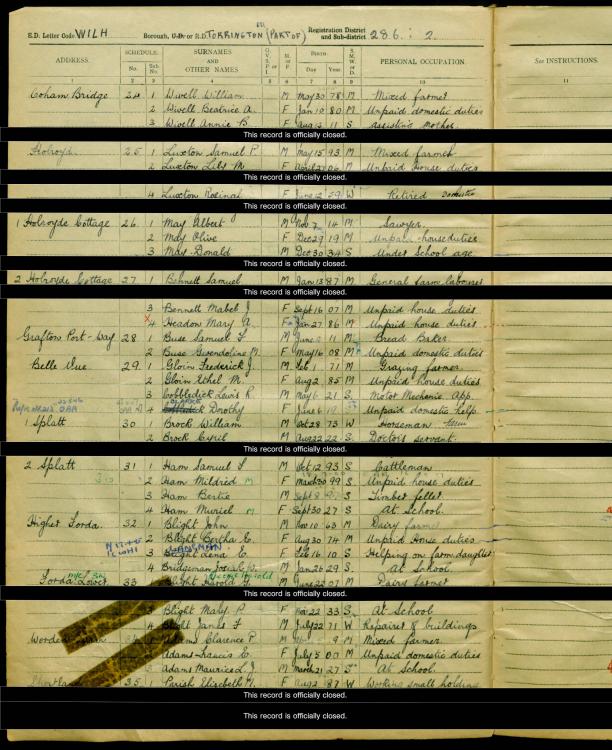 E.D. Letter Code WILH Borough, U.D. or R.D. TORRINGTON (PART OF) Registration District and Sub-district 286 : 2.
ADDRESS. SCHEDULE. No. Sub. No. SURNAMES AND OTHER NAMES M. or F. BIRTH— Day Year S. M. W. or D. PERSONAL OCCUPATION. See INSTRUCTIONS.
1 2 3 4 5 6 7 8 9 10 11
Coham Bridge 24 1 Wivell William M May 30 78 M Mixed farmer
2 Wivell Beatrice A. F Jan 10 80 M Unpaid domestic duties
3 Wivell Annie B. F Aug 11 S assisting mother.
This record is officially closed.
Holroyd. 25 1 Luxton Samuel P. M May 15 93 M Mixed farmer
2 Luxton M F April 06 M Unpaid House duties
This record is officially closed.
4 Luxton Rosina F June 12 59 W Retired Domestic
This record is officially closed.
1 Holroyde Cottage 26 1 May Albert M Nov 7 14 M Sawyer
2 May Olive F Dec 29 19 M Unpaid house duties
3 May Donald M Dec 30 34 S Under School age.
This record is officially closed.
2 Holroyde Cottage 27 1 Bennett Samuel M Jan 13 87 M General farm labourer
This record is officially closed.
3 Bennett Mabel J F Sept 16 07 M Unpaid house duties
4 Headon Mary A. F Jan 27 86 M Unpaid house duties
Grafton Port-way 28 1 Buse Samuel F. M June 11 M Bread Baker
2 Buse Gwendoline M. F May 16 08 M Unpaid domestic duties
Belle Vue 29 1 Gloin Frederick J. M Feb 1 71 M Grazing farmer
2 Gloin Ethel M. F Aug 2 85 M Unpaid house duties
3 Cobbledick Lewis R. M May 6 21 S Motor Mechanic App.
4 Dorothy F June 6 19 Unpaid domestic help
1 Splatt 30 1 Brock William M Oct 28 73 W Horseman
2 Brock Cyril M Aug 22 22 S Doctors servant.
This record is officially closed.
2 Splatt 31 1 Ham Samuel F M Oct 12 93 S Cattleman
2 Ham Mildred M F March 30 99 S Unpaid house duties
3 Ham Bertie M Sept 8 S Timber feller
4 Ham Muriel M F Sept 30 27 S At School.
Higher Forda. 32 1 Blight John M Nov 10 63 M Dairy farmer
2 Blight Bertha E. F Aug 30 74 M Unpaid House duties
LANGMAN
3 Blight Lena E. F Feb 16 10 S Helping on farm, daughter
4 Bridgeman Josiah M Jan 26 29 S. At School
Forda Lower 33 Blight Harold M June 22 07 M Dairy farmer
This record is officially closed.
3 Blight Mary P. F Nov 22 33 S At School
4 Blight James F M July 22 71 W Repairer of buildings
Worden 34 1 Adams Clarence P. M 9 M Mixed farmer
Adams Francis E. F July 5 00 M Unpaid domestic duties
3 Adams Maurice L. J. M March 21 27 S At School
35 1 Parish Elizabeth M. F Aug 2 87 W Working small holding
This record is officially closed.
This record is officially closed.